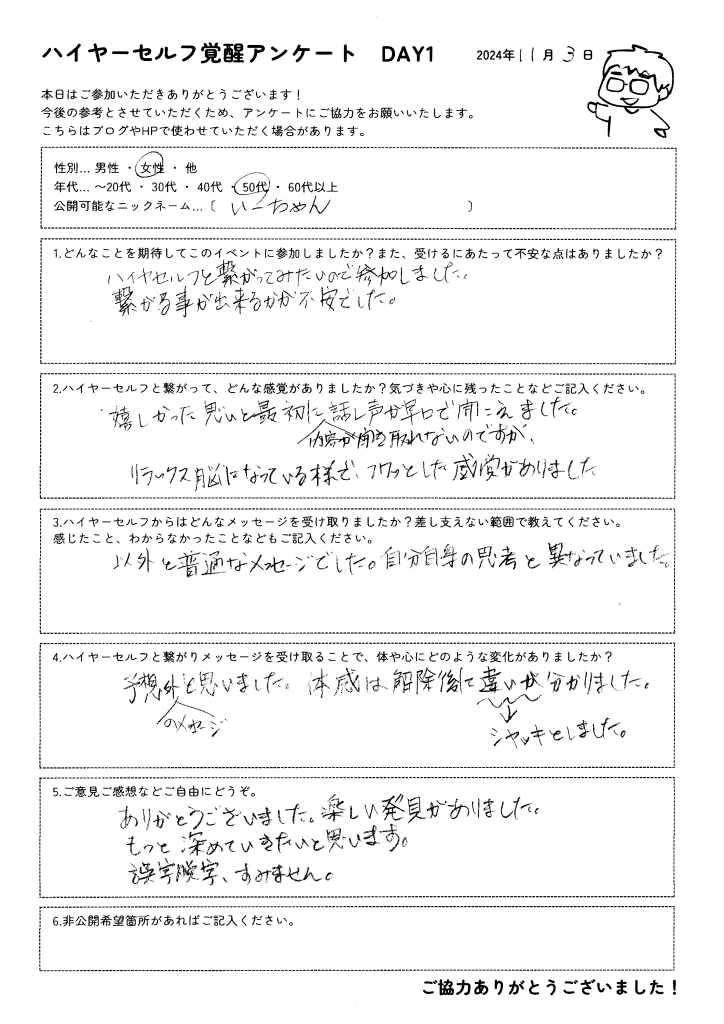 ハイヤーセルフ覚醒アンケート　DAY1　2024年11月3日
本日はご参加いただきありがとうございます！
今後の参考とさせていただくため、アンケートにご協力をお願いいたします。
こちらはブログやHPで使わせていただく場合があります。
性別… 男性 ・ 女性 ・ 他
年代… 〜20代 ・ 30代 ・ 40代 ・ 50代 ・ 60代以上
公開可能なニックネーム…〔 いーちゃん 〕
1.どんなことを期待してこのイベントに参加しましたか？また、受けるにあたって不安な点はありましたか？
ハイヤセルフと繋がってみたいので参加しました。
繋がる事が出来るかが不安でした。
2.ハイヤーセルフと繋がって、どんな感覚がありましたか？気づきや心に残ったことなどご記入ください。
嬉しかった思いと最初に話し声が早口で聞こえました。
内容が聞き取れないのですが、
リラックス脳になっている様で、フワッとした感覚がありました
3.ハイヤーセルフからはどんなメッセージを受け取りましたか？差し支えない範囲で教えてください。
感じたこと、わからなかったことなどもご記入ください。
以外と普通なメッセージでした。自分自身の思考と異なっていました。
4.ハイヤーセルフと繋がりメッセージを受け取ることで、体や心にどのような変化がありましたか？
予想外と思いました。体感は解除後に違いが分かりました。
のメッセージ
シャッキとしました。
5.ご意見ご感想などご自由にどうぞ。
ありがとうございました。楽しい発見がありました。
もっと深めていきたいと思います。
誤字脱字、すみません。
6.非公開希望箇所があればご記入ください。
ご協力ありがとうございました！